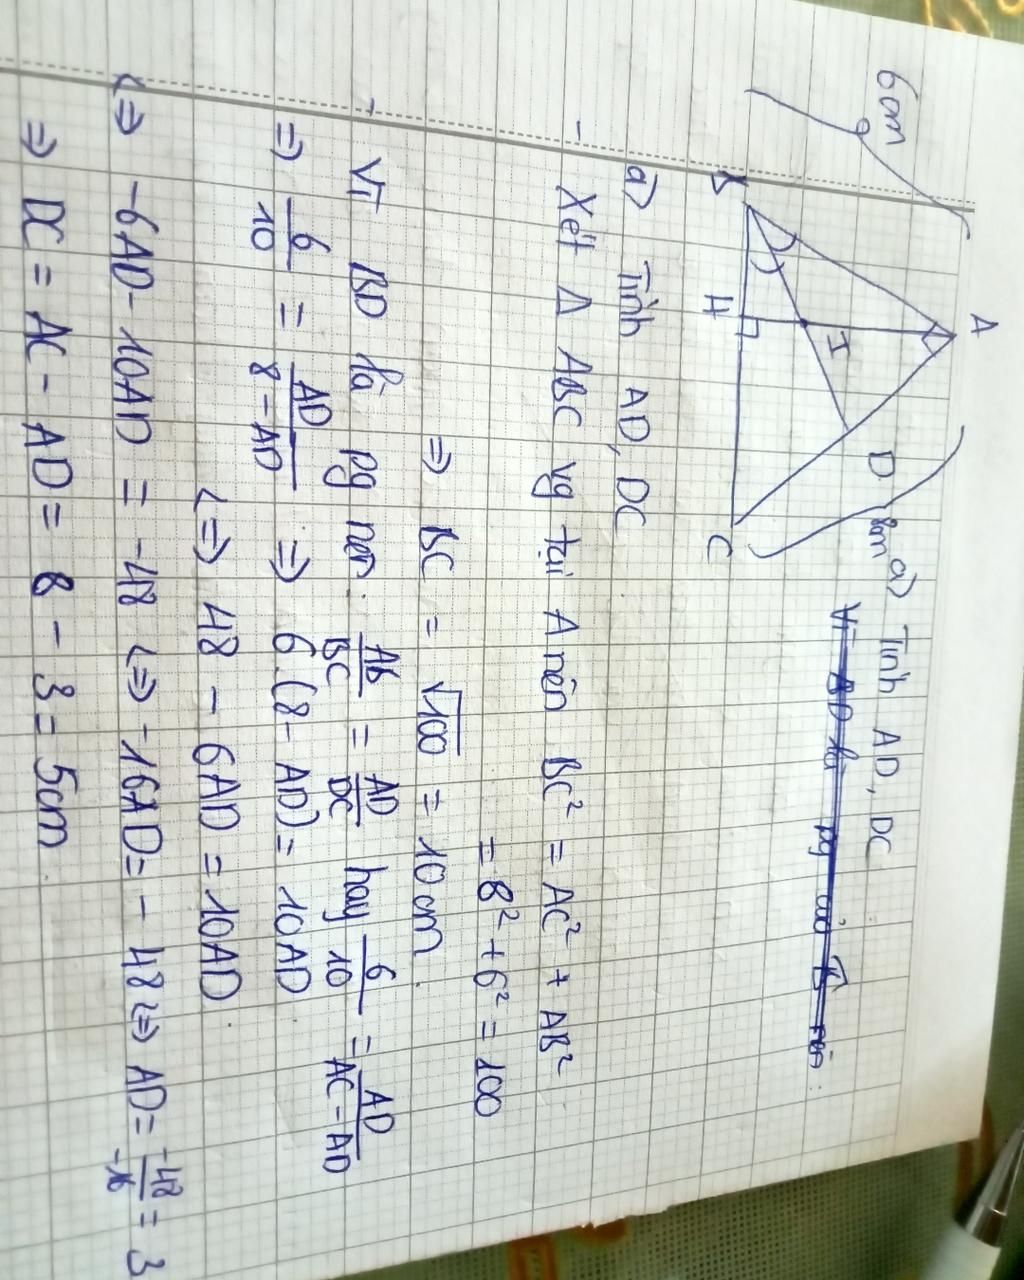 A
6cm
D
8cm
I
B
H
C
a) Tính AD, DC
Vì BD là pg nên :
a) Tính AD, DC
- Xét Δ ABC vg tại A nên BC² = AC² + AB²
= 8² + 6² = 100
⇒ BC = √100 = 10 cm.
- Vì BD là pg nên: AB/BC = AD/DC hay 6/10 = AD/AC - AD
⇒ 6/10 = AD/8 - AD ⇒ 6.(8 - AD) = 10AD
<=> 48 - 6AD = 10AD.
<=> -6AD - 10AD = -48 <=> -16AD = -48 <=> AD = -48/-16 = 3
⇒ DC = AC - AD = 8 - 3 = 5cm